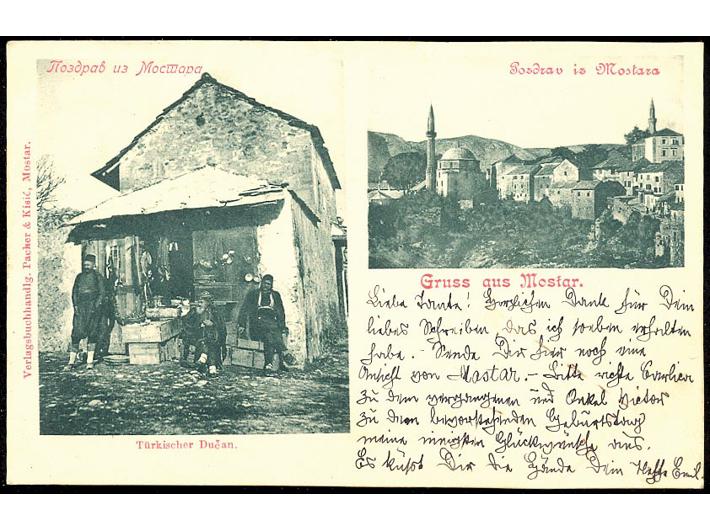 Поздрав из Мостара
Pozdrav iz Mostara
Verlagsbuchhandlg. Pacher & Kisić, Mostar.
Türkischer Dučan.
Gruss aus Mostar.
Liebe Tante! Herzlichen Dank für Dein
liebes Schreiben, das ich soeben erhalten
habe. - Sende Dir hier noch eine
Ansicht von Mostar. - Bitte richte
zu dem vergangenen und Onkel Victor
zu dem bevorstehenden Geburtstag
meine innigsten Glückwünsche aus.
Es küsst Dir die Hände Dein Neffe Emil.